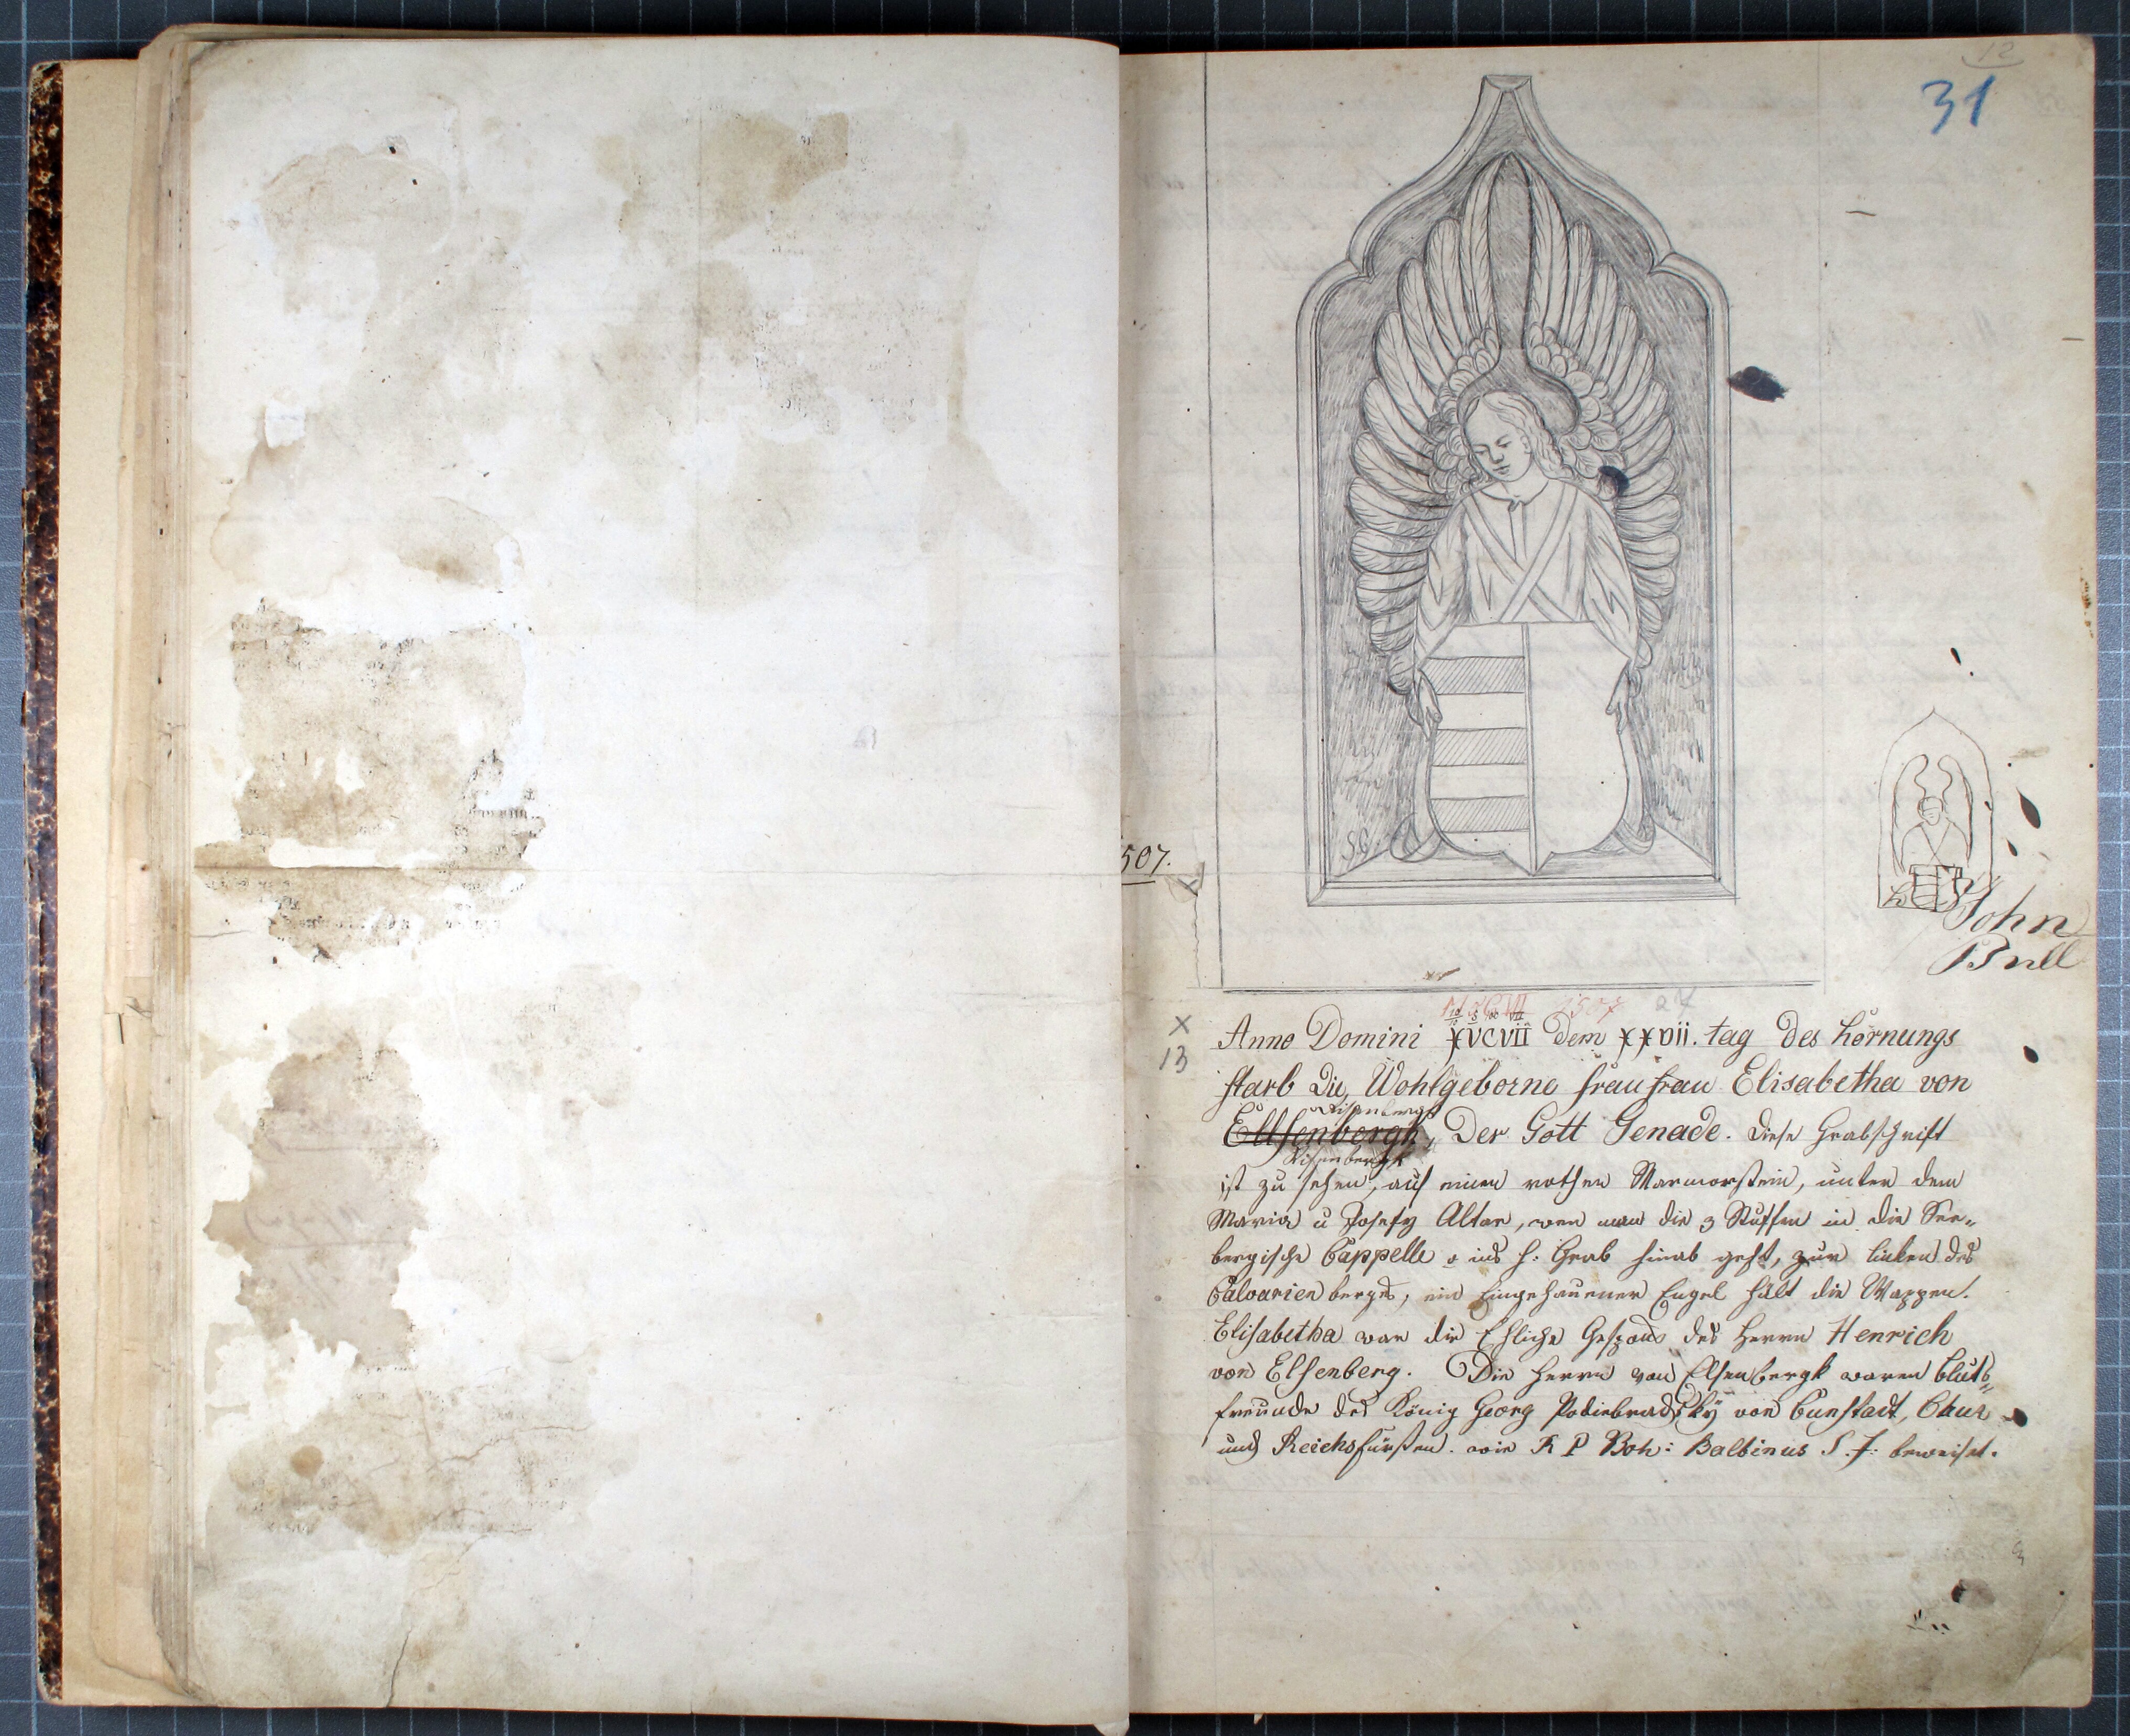 12
31
507.
John
Bull
1507 27
X
13
Anno Domini XVCVII dem XXVII. tag des hörnungs
starb die, Wohlgeborne frau frau Elisabetha von
Risenbergk
Ellsenbergk, Der Gott Genade. Diese Grabschrift
Risenbergk
ist zu sehen, auf einen rothen Marmorstein, unter dem
Maria u Josefy Altar, wen man die 3 Stuffen in die See„
bergische Cappelle o ins H: Grab hinab geht, zur linken des
Calvarien berges, ein Eingehauener Engel hält die Wappen.
Elisabetha war die Ehliche Gespons des Herrn Henrich
von Elsenberg. Die Herrn von Elsenbergk waren bluts„
freunde des König Georg Podiebradsky von Cunstadt, Chur
und Reichsfürsten. wie R P Boh: Balbinus S. J. beweiset.